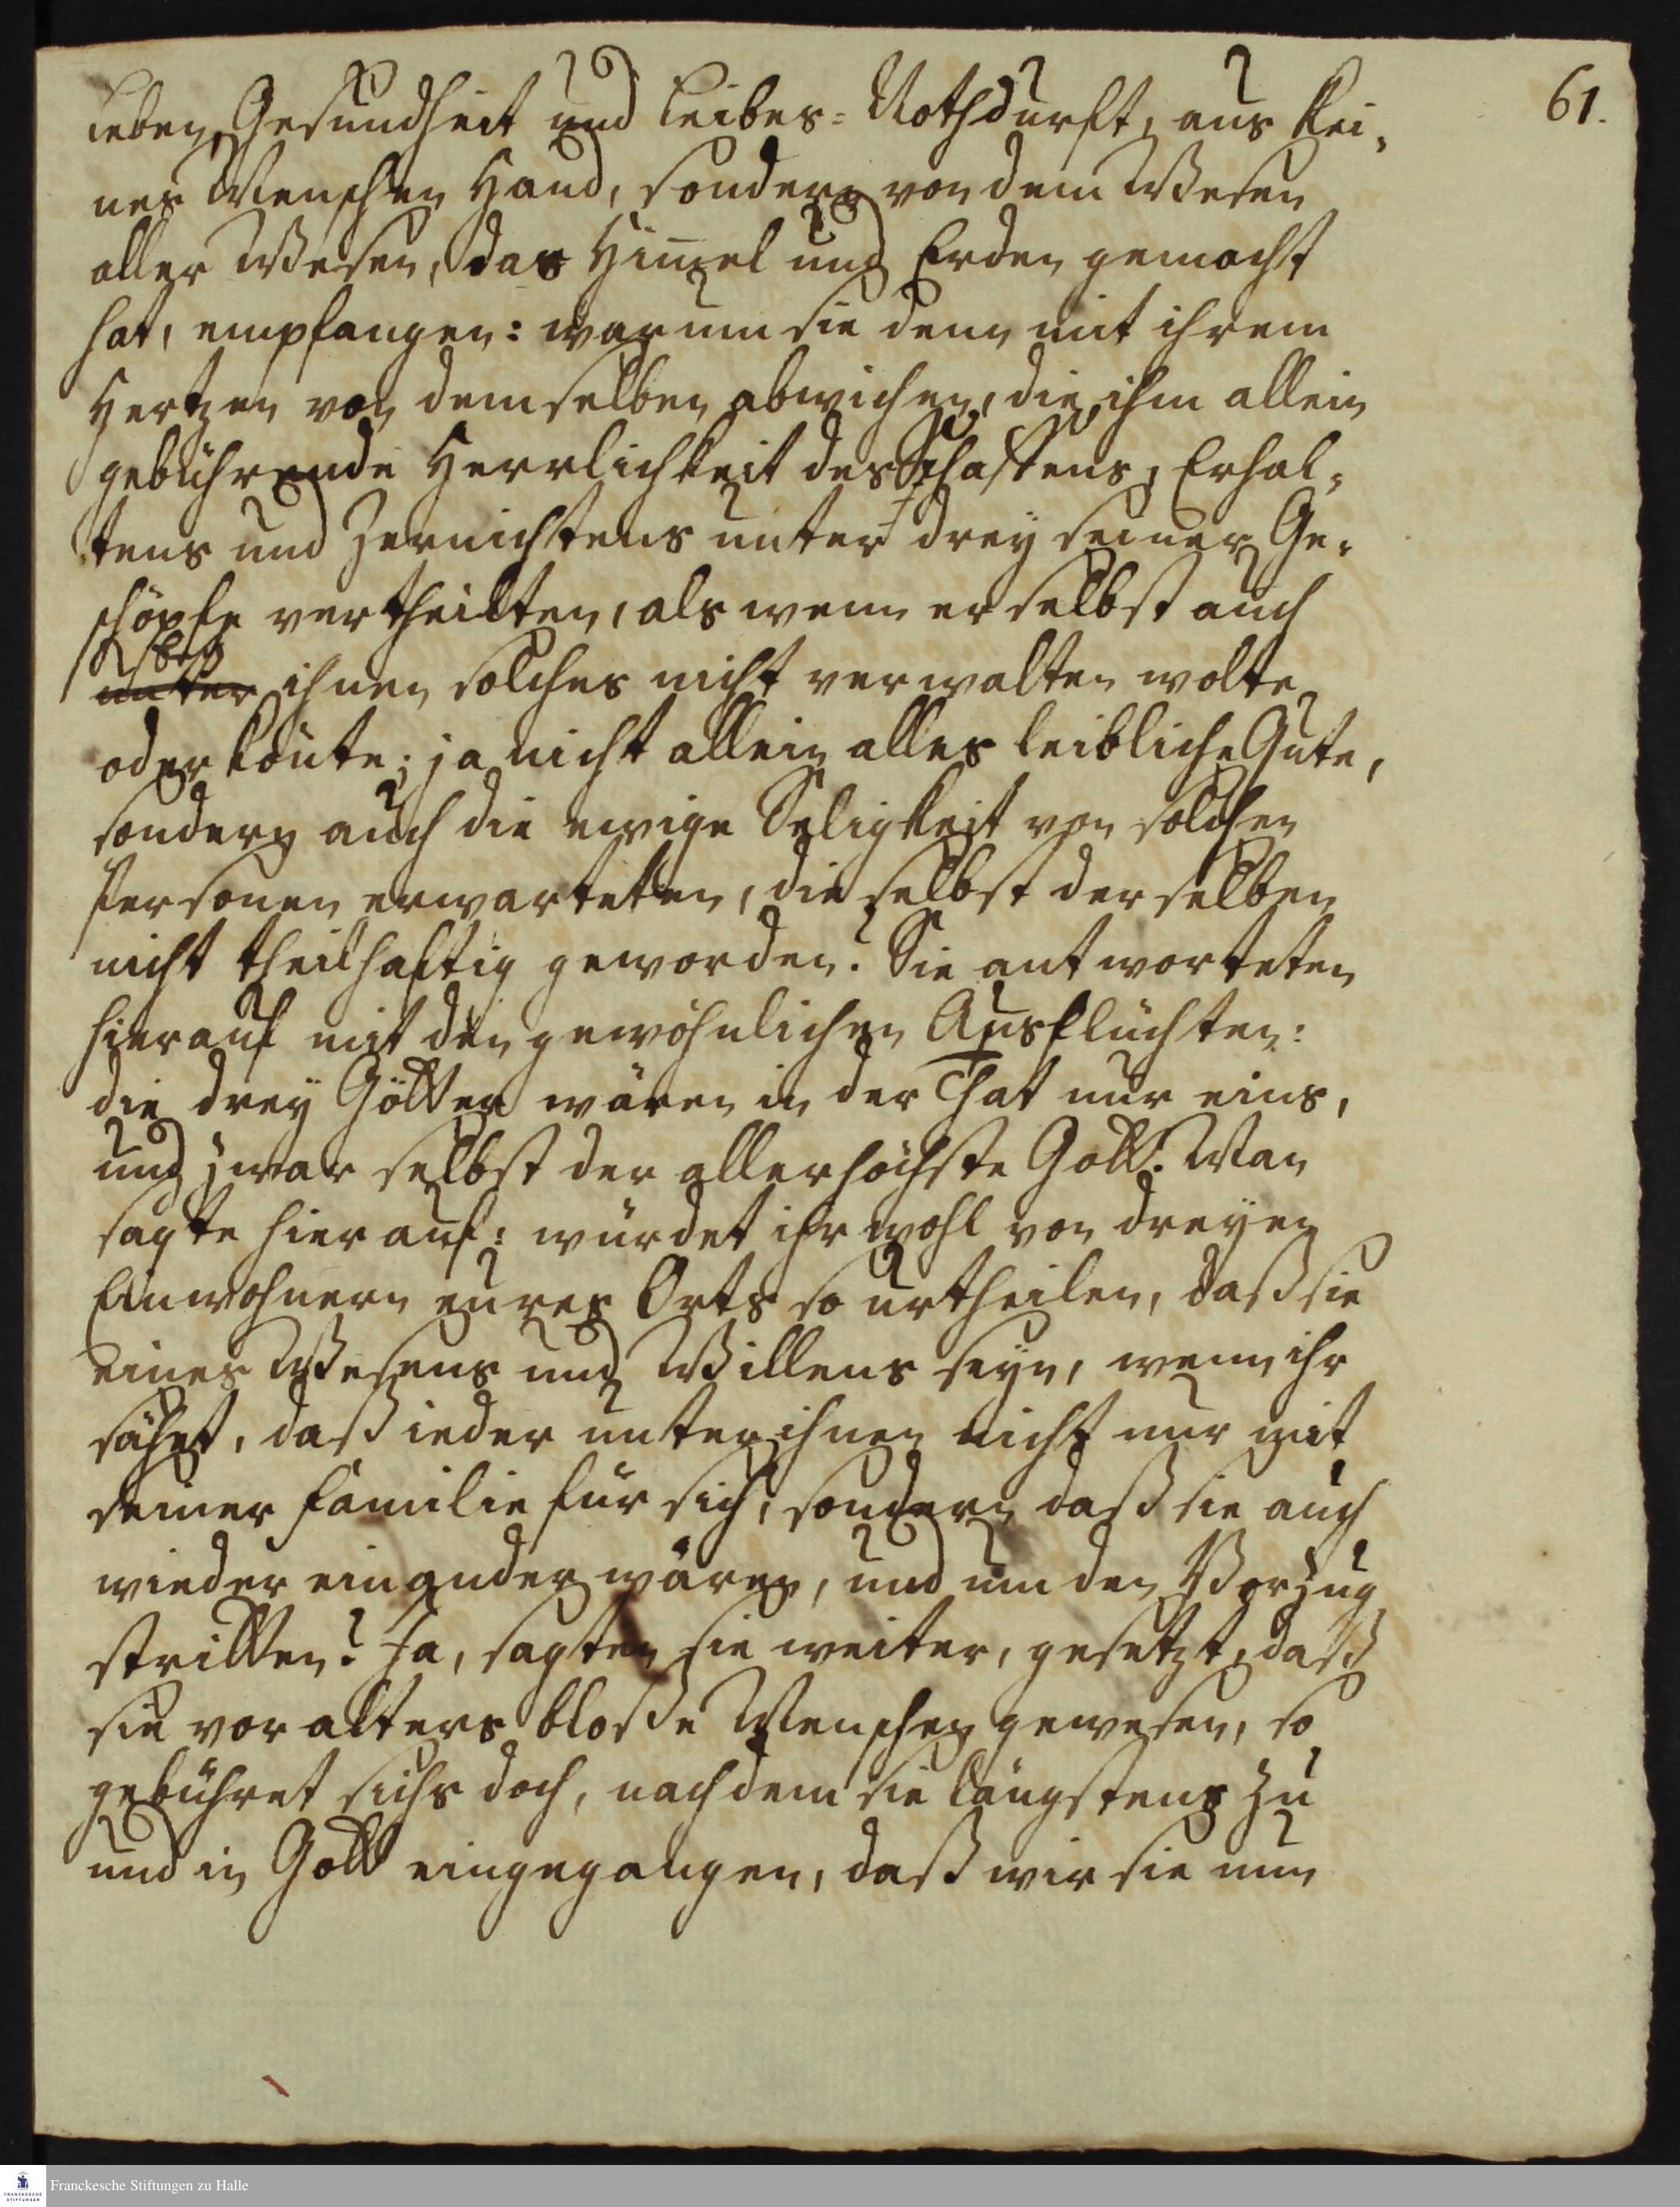 61.
Leben, Gesundheit und Leibes-Nothdurft, aus kei-
nes Menschen Hand, sondern von dem Wesen
aller Wesen, das Him̅el und Erden gemacht
hat, empfangen: warum sie denn mit ihrem
Hertzen von demselben abwichen, die ihm allein
gebührende Herrlichkeit des Schaffens, Erhal-
tens und Zernichtens unter drey seiner Ge-
schöpfe vertheilten, als wenn er selbst auch
unter ihnen solches nicht verwalten wolte
oder kön̅te; ja nicht allein alles leibliche Gute,
sondern auch die ewige Seligkeit von solchen
Personen erwarteten, die selbst derselben
nicht theilhaftig geworden? Sie antworteten
hierauf mit den gewöhnlichen Ausflüchten:
die drey Götter wären in der That nur eins,
und zwar selbst der allerhöchste Gott. Man
sagte hierauf: würdet ihr wohl von dreyen
Einwohnern eures Orts so urtheilen, daß sie
eines Wesens und Willens seyn, wenn ihr
sähet, daß ieder unter ihnen nicht nur mit
seiner Familie für sich, sondern daß sie auch
wieder einander wären, und um den Vorzug
stritten? Ja, sagten sie weiter, gesetzt, daß
sie vor alters bloße Menschen gewesen, so
gebühret sichs doch, nachdem sie längstens zu
und in Gott eingegangen, daß wir sie nun
Franckesche Stiftungen zu Halle
FRANCKESCHE
STIFTUNGEN